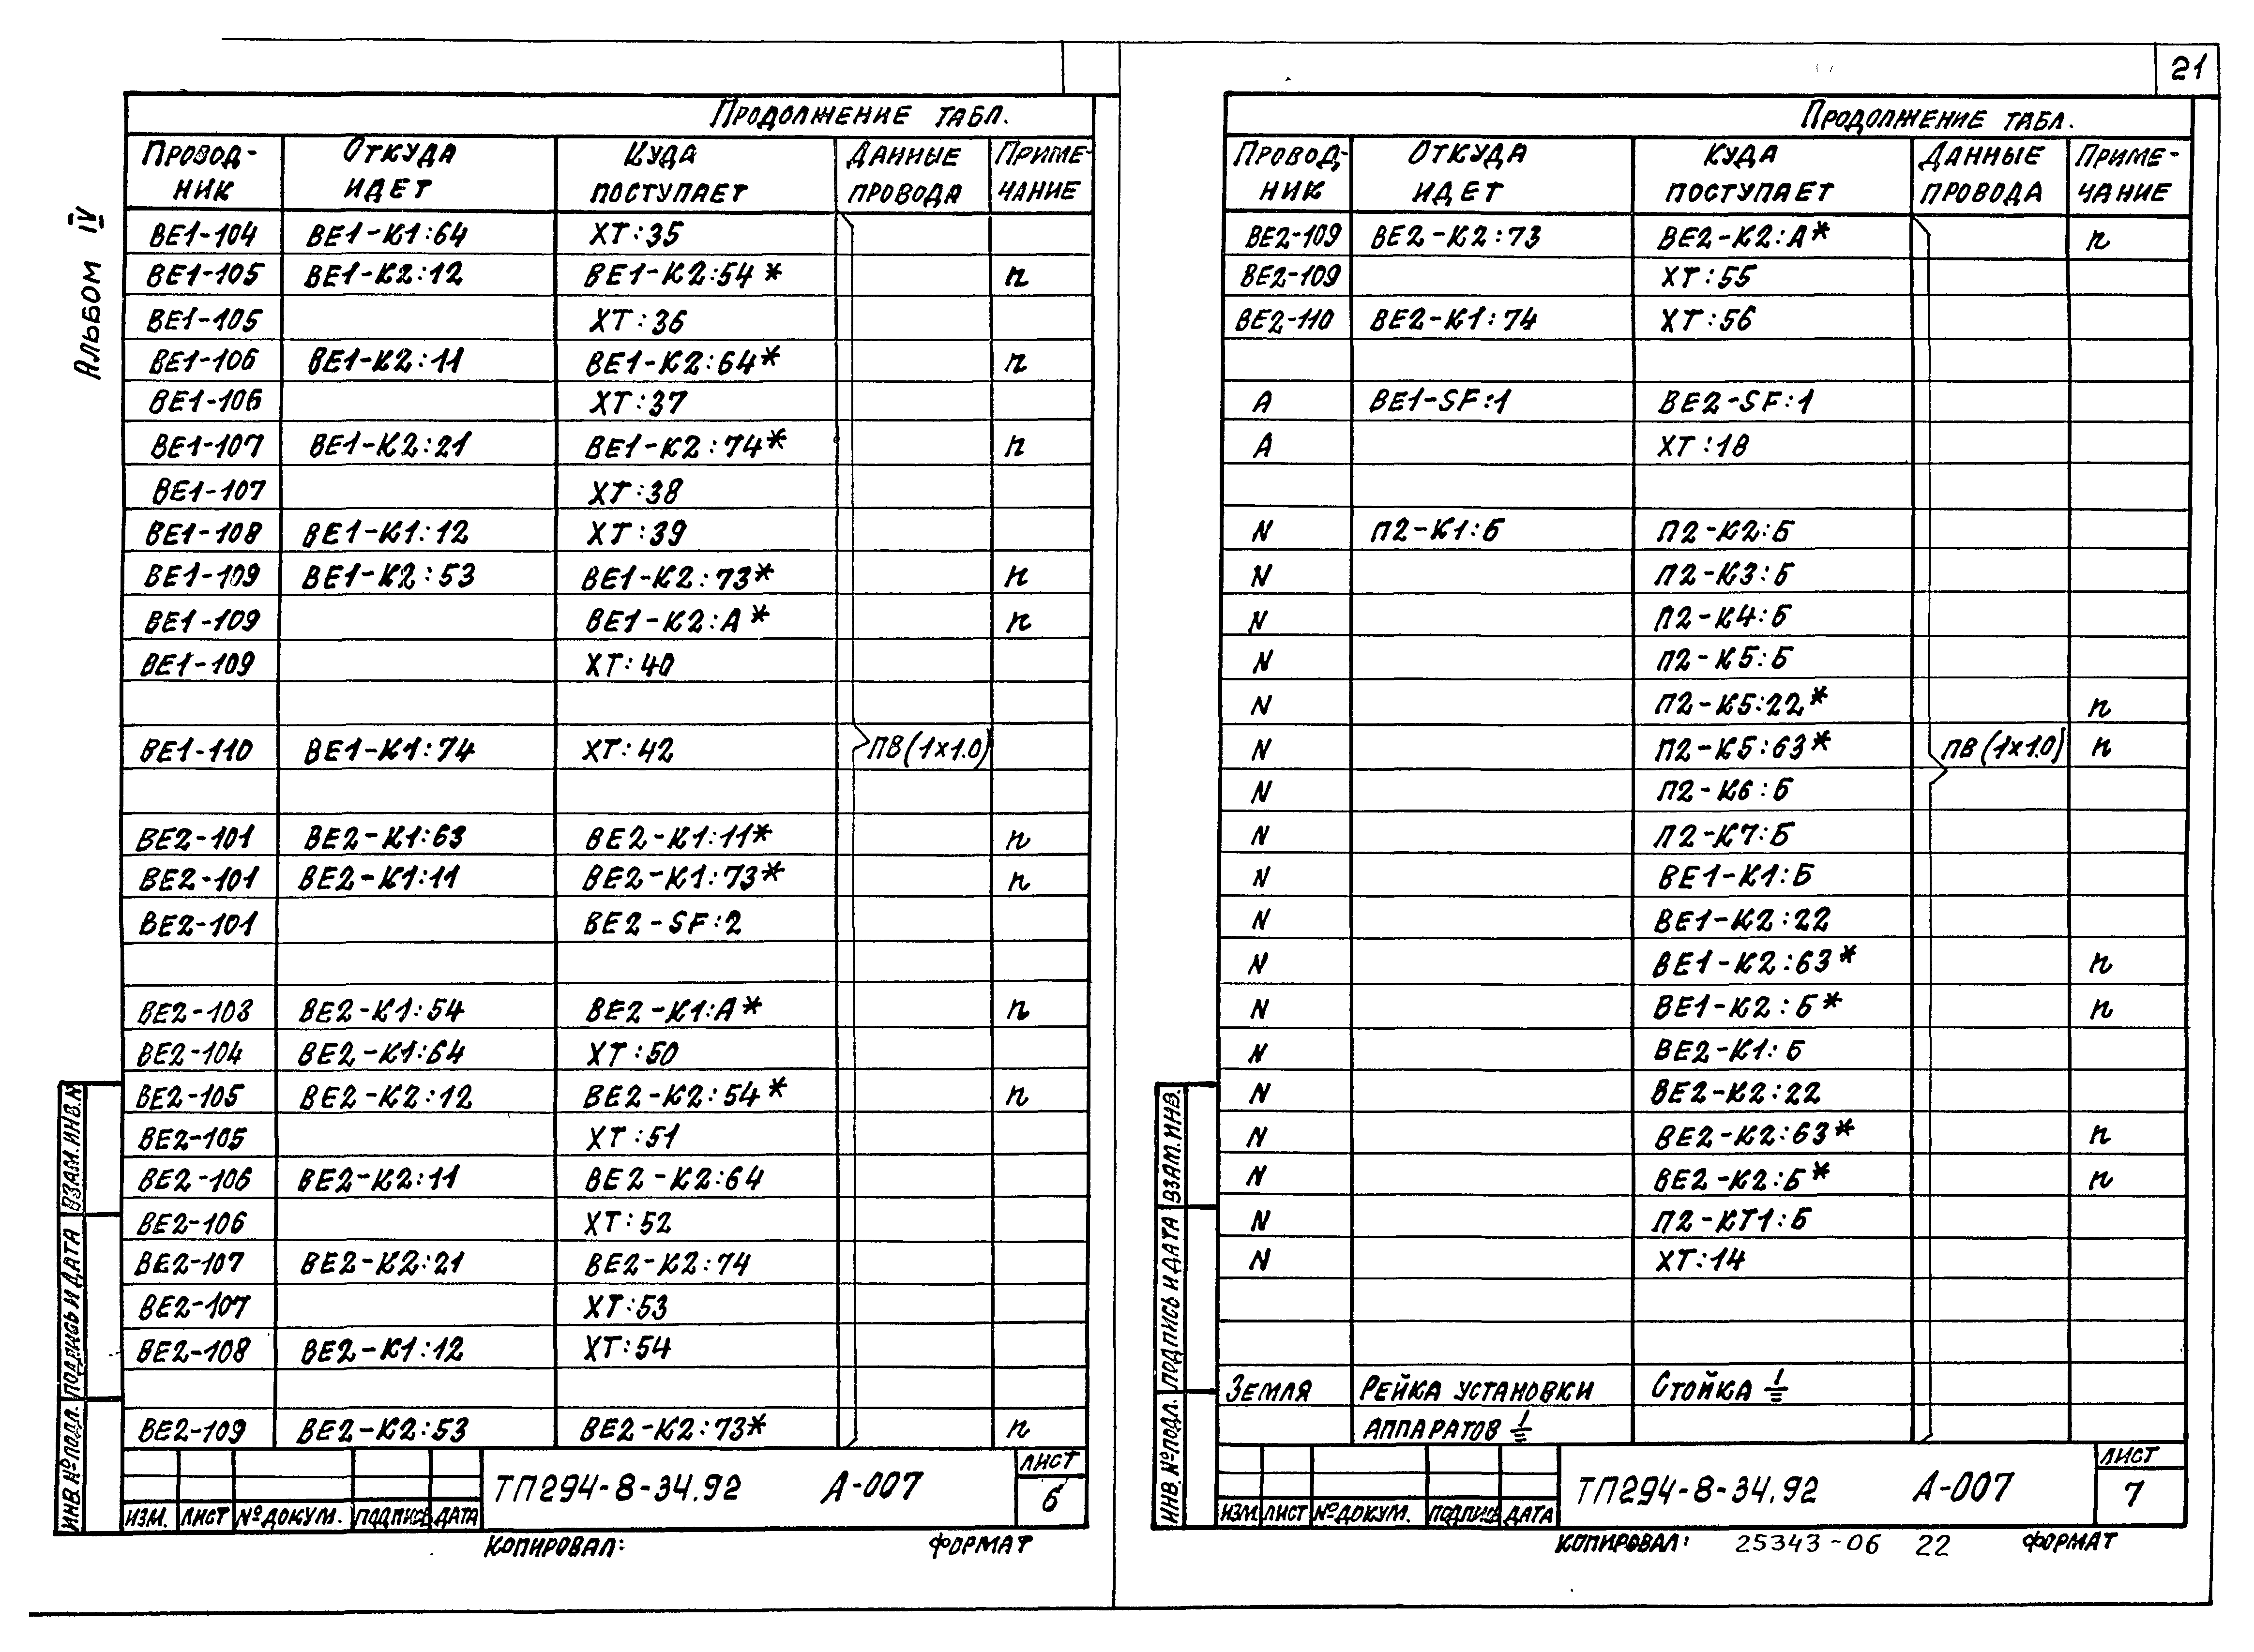 21
Альбом IV
Продолжение табл.
Провод-ник Откуда идет Куда поступает Данные провода Приме-чание
ВЕ1-104 ВЕ1-К1:64 ХТ:35
ВЕ1-105 ВЕ1-К2:12 ВЕ1-К2:54* п
ВЕ1-105 ХТ:36
ВЕ1-106 ВЕ1-К2:11 ВЕ1-К2:64* п
ВЕ1-106 ХТ:37
ВЕ1-107 ВЕ1-К2:21 ВЕ1-К2:74* п
ВЕ1-107 ХТ:38
ВЕ1-108 ВЕ1-К1:12 ХТ:39
ВЕ1-109 ВЕ1-К2:53 ВЕ1-К2:73* п
ВЕ1-109 ВЕ1-К2:А* п
ВЕ1-109 ХТ:40
ВЕ1-110 ВЕ1-К1:74 ХТ:42 ПВ(1х1.0)
ВЕ2-101 ВЕ2-К1:63 ВЕ2-К1:11* п
ВЕ2-101 ВЕ2-К1:11 ВЕ2-К1:73* п
ВЕ2-101 ВЕ2-SF:2
ВЕ2-103 ВЕ2-К1:54 ВЕ2-К1:А* п
ВЕ2-104 ВЕ2-К1:64 ХТ:50
ВЕ2-105 ВЕ2-К2:12 ВЕ2-К2:54* п
ВЕ2-105 ХТ:51
ВЕ2-106 ВЕ2-К2:11 ВЕ2-К2:64
ВЕ2-106 ХТ:52
ВЕ2-107 ВЕ2-К2:21 ВЕ2-К2:74
ВЕ2-107 ХТ:53
ВЕ2-108 ВЕ2-К1:12 ХТ:54
ВЕ2-109 ВЕ2-К2:53 ВЕ2-К2:73* п
Взам.инв.N
Подпись и дата
Инв.№подл.
Изм. Лист №докум. Подпись Дата
ТП294-8-34.92 А-007
Лист
6
Копировал: Формат
Продолжение табл.
Провод-ник Откуда идет Куда поступает Данные провода Приме-чание
ВЕ2-109 ВЕ2-К2:73 ВЕ2-К2:А* п
ВЕ2-109 ХТ:55
ВЕ2-110 ВЕ2-К1:74 ХТ:56
А ВЕ1-SF:1 ВЕ2-SF:1
А ХТ:18
N П2-К1:Б П2-К2:Б
N П2-К3:Б
N П2-К4:Б
N П2-К5:Б
N П2-К5:22* п
N П2-К5:63* ПВ(1х1.0) п
N П2-К6:Б
N П2-К7:Б
N ВЕ1-К1:Б
N ВЕ1-К2:22
N ВЕ1-К2:63* п
N ВЕ1-К2:Б* п
N ВЕ2-К1:Б
N ВЕ2-К2:22
N ВЕ2-К2:63* п
N ВЕ2-К2:Б* п
N П2-КТ1:Б
N ХТ:14
Земля Рейка установки Стойка ⏚
аппаратов ⏚
Взам.инв.
Подпись и дата
Инв.№подл.
Изм. Лист №докум. Подпись Дата
ТП294-8-34.92 А-007
Лист
7
Копировал: 25343-06 22 Формат